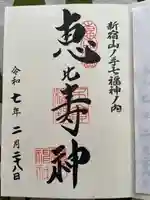 新宿山ノ手七福神ノ内
恵比寿神
令和七年二月二十八日